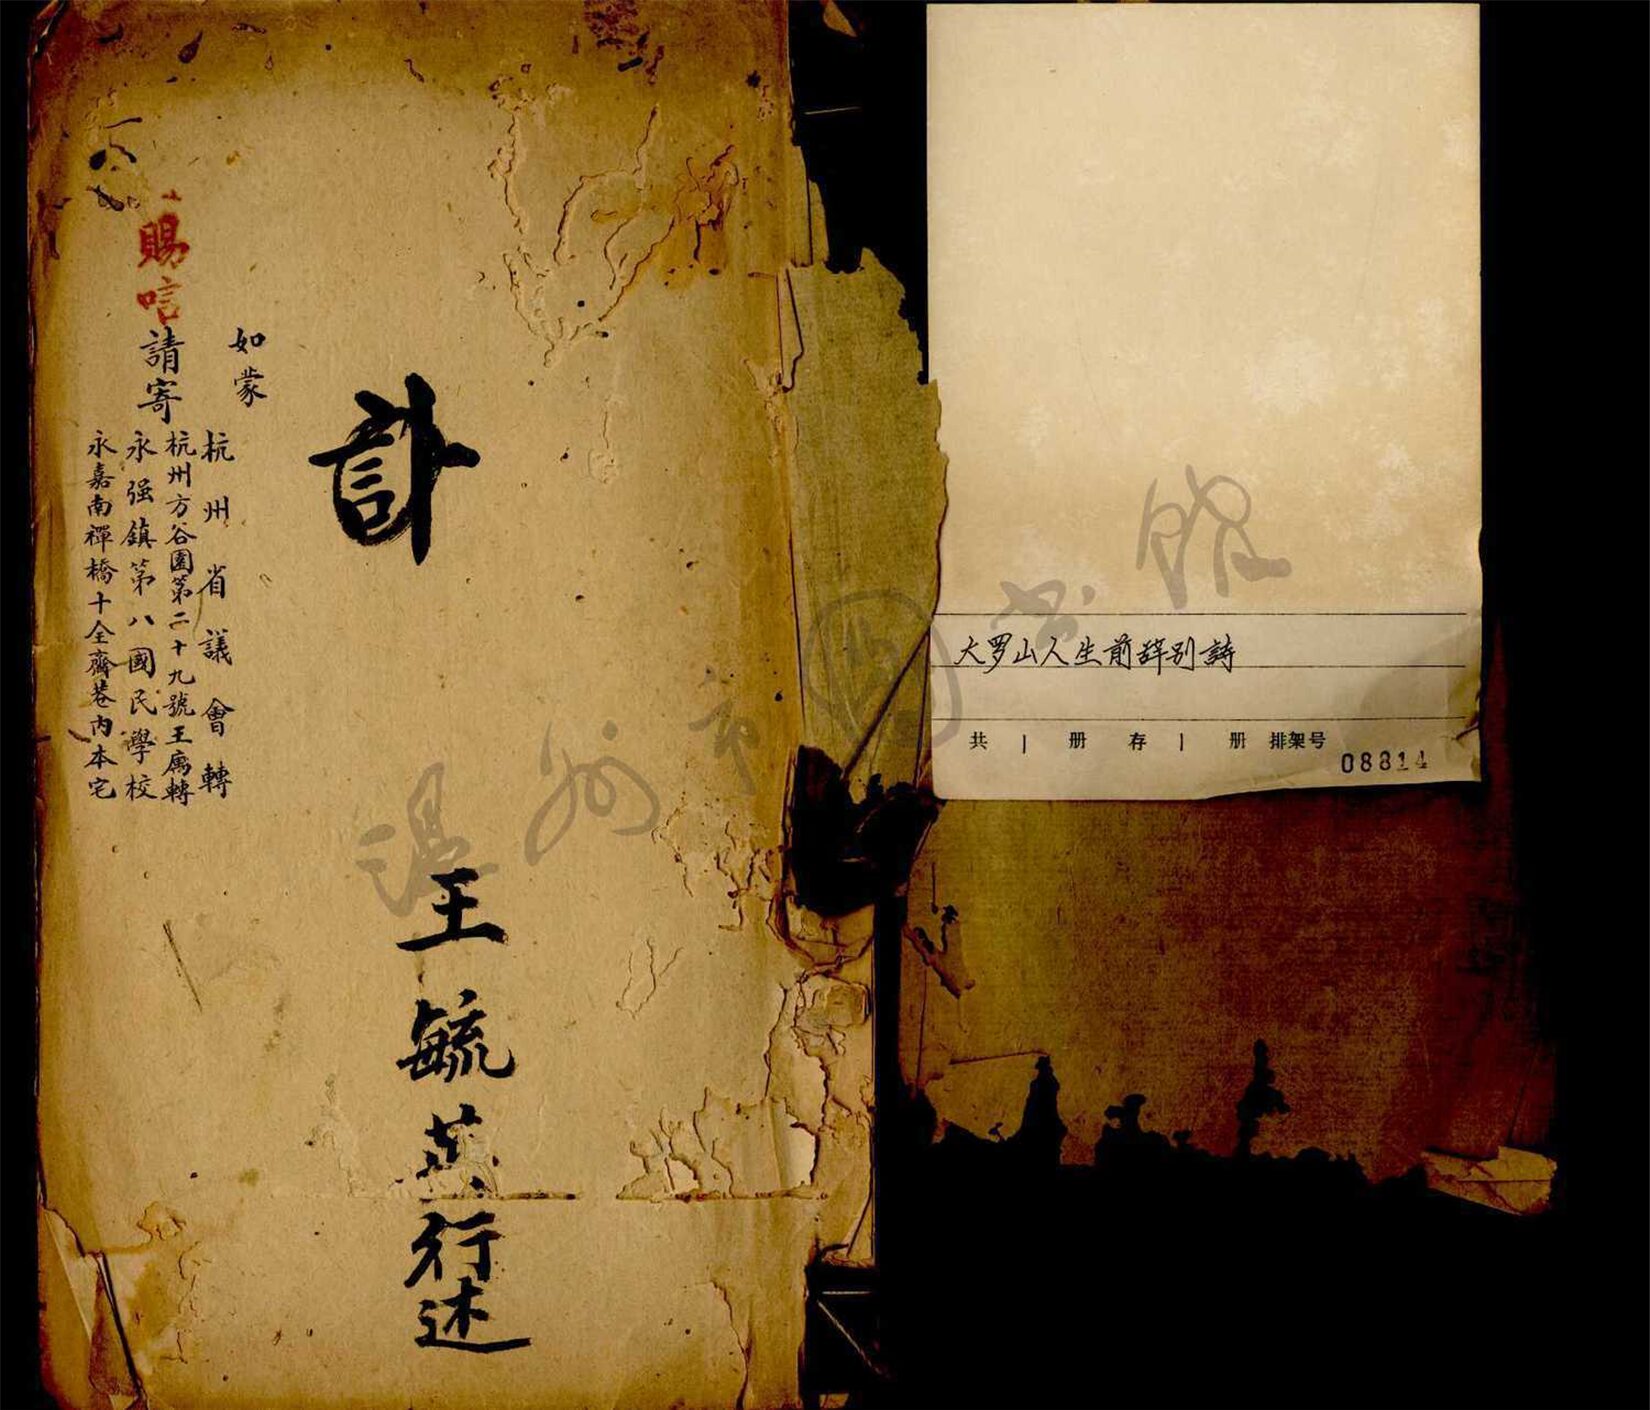 大罗山人生前辞别詩
共 1 册 存 1 册 排架号 08814
訃
王毓英行述
如蒙
賜唁
請寄
杭州省議會轉
杭州方谷園第二十九號王寓轉
永强鎮第八國民學校
永嘉南禪橋十全齋巷内本宅
温州市圖书馆